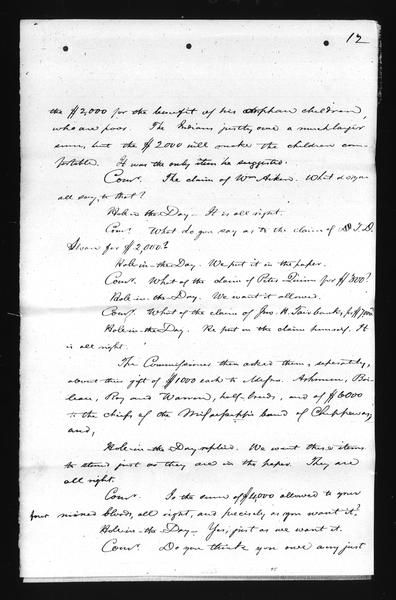 12
the $2,000 for the benefit of his orphan children,
who are poor. The Indians justly owe a much larger
sum, but the $2000 will make the children com-
fortable. It was the only item he suggested.
Comr. The claim of Wm Aitken. What do you
all say, to that?
Hole-in-the-Day — It is all right.
Comr. What do you say as to the claim of D. T. D.
Sloan for $2,000?
Hole-in-the-Day. We put it in the paper.
Comr. What of the claim of Peter Quinn for $800?
Hole-in-the-Day. We want it allowed.
Comr. What of the claim of Jno. H. Fairbanks, for
Hole-in-the-Day. He put in the claim himself. It
is all right.
The Commissioner then asked them, separately,
about their gift of $1000 each to Messrs. Ashmun,
Roy and Warren, half-breeds, and of $6000
to the chiefs of the Mississippi band of Chippeways,
and,
Hole-in-the-Day replied. We want these items
to stand just as they are in the paper. They are
all right.
Comr. Is the sum of $4,000 allowed to your
poor mixed bloods, all right, and precisely as you want it?
Hole-in-the-Day — Yes, just as we want it.
Comr. Do you think you owe any just